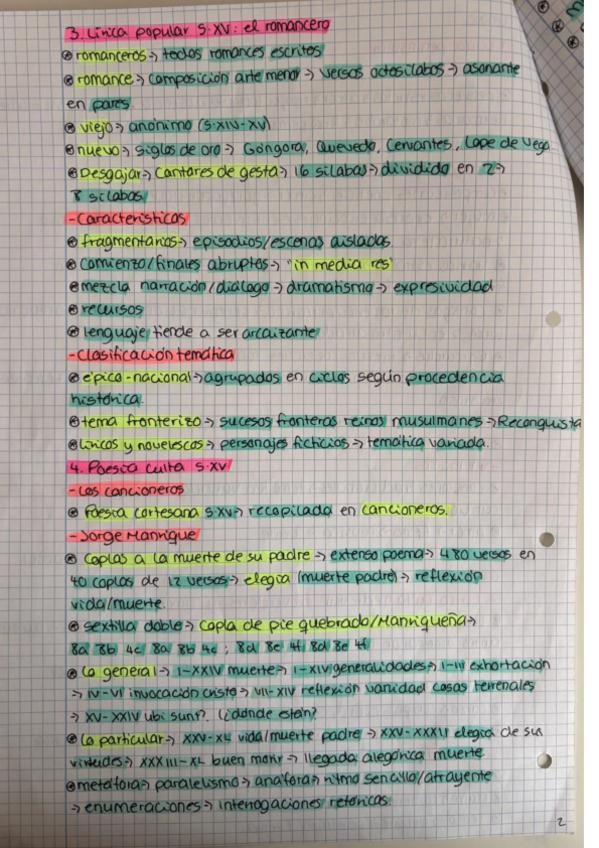 3. Lírica popular s.XV: el romancero
romanceros → todos romances escritos
romance → composición arte menor → versos octosílabos → asonante
en pares
viejo → anónimo (s.XIV-XV)
nuevo → siglos de oro → Góngora, Quevedo, Cervantes, Lope de Vega
Desgajar → Cantares de gesta → 16 sílabas → dividido en 2 →
8 sílabas
- Características
fragmentarios → episodios/escenas aisladas.
comienzo/finales abruptos → "in media res"
mezcla narración/diálogo → dramatismo → expresividad
recursos
lenguaje tiende a ser arcaizante
- Clasificación temática
épico-nacional → agrupados en ciclos según procedencia
histórica.
tema fronterizo → sucesos fronteras reinos musulmanes → Reconquista
líricos y novelescos → personajes ficticios → temática variada.
4. Poesía culta s.XV
- Los cancioneros
Poesía cortesana s.XV → recopilada en cancioneros.
- Jorge Manrique
Coplas a la muerte de su padre → extenso poema → 480 versos en
40 coplas de 12 versos → elegía (muerte padre) → reflexión
vida/muerte.
sextilla doble → copla de pie quebrado/Manriqueña →
8a 8b 4c 8a 8b 4c ; 8d 8e 4f 8d 8e 4f
Lo general → I-XXIV muerte → I-XIV generalidades → I-III exhortación
→ IV-VI invocación cristo → VII-XIV reflexión vanidad cosas terrenales
→ XV-XXIV ubi sunt? (¿dónde están?
Lo particular → XXV-XL vida/muerte padre → XXV-XXXII elegía de sus
virtudes → XXXIII-XL buen morir → llegada alegórica muerte
metáfora → paralelismo → anáfora → ritmo sencillo/atrayente
→ enumeraciones → interrogaciones retóricas.
2